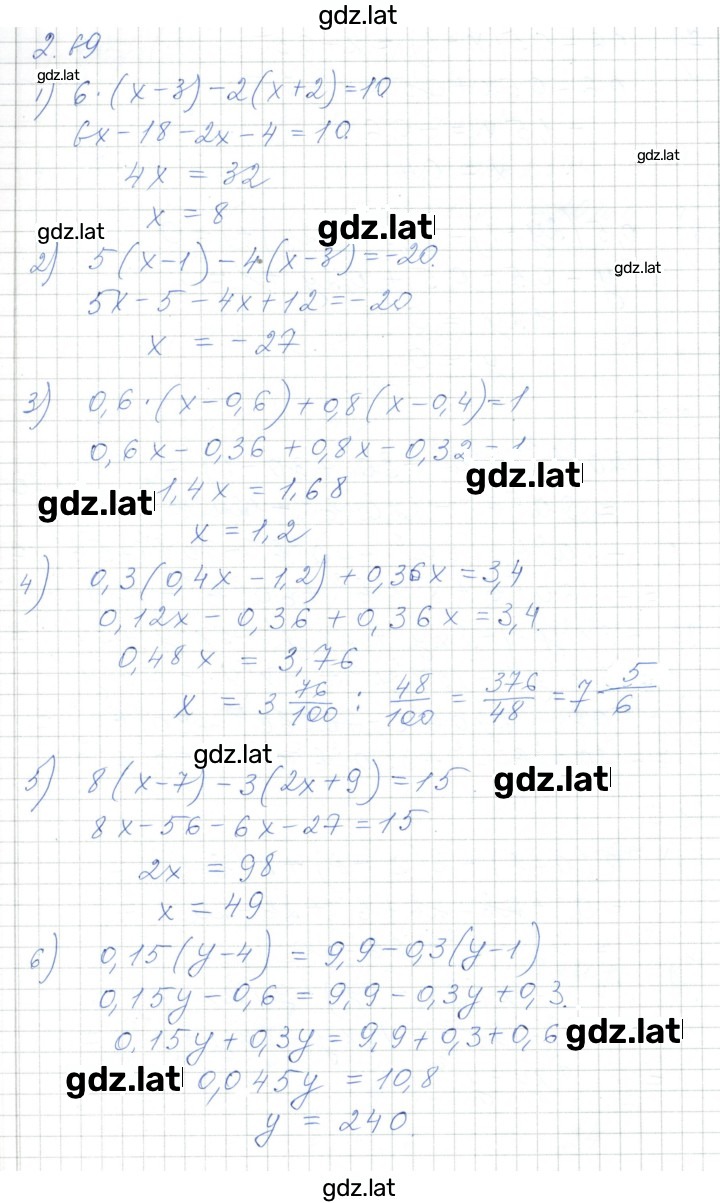 gdz.lat
2.89
gdz.lat
1) 6·(x-3)-2(x+2)=10
6x-18-2x-4=10
gdz.lat
4x = 32
x = 8
gdz.lat
gdz.lat
2) 5(x-1)-4(x-3)=-20.
gdz.lat
5x-5-4x+12=-20
x = -27
3) 0,6·(x-0,6)+0,8(x-0,4)=1
0,6x-0,36+0,8x-0,32=1
gdz.lat
gdz.lat
1,4x = 1,68
x = 1,2
4) 0,3(0,4x-1,2)+0,36x=3,4
0,12x-0,36+0,36x=3,4.
0,48x = 3,76
x = 3 76/100 : 48/100 = 376/48 = 7 5/6
gdz.lat
5) 8(x-7)-3(2x+9)=15
gdz.lat
8x-56-6x-27=15
2x = 98
x = 49
6) 0,15(y-4) = 9,9-0,3(y-1)
0,15y-0,6 = 9,9-0,3y+0,3.
0,15y+0,3y = 9,9+0,3+0,6
gdz.lat
gdz.lat
0,045y = 10,8
y = 240.
gdz.lat